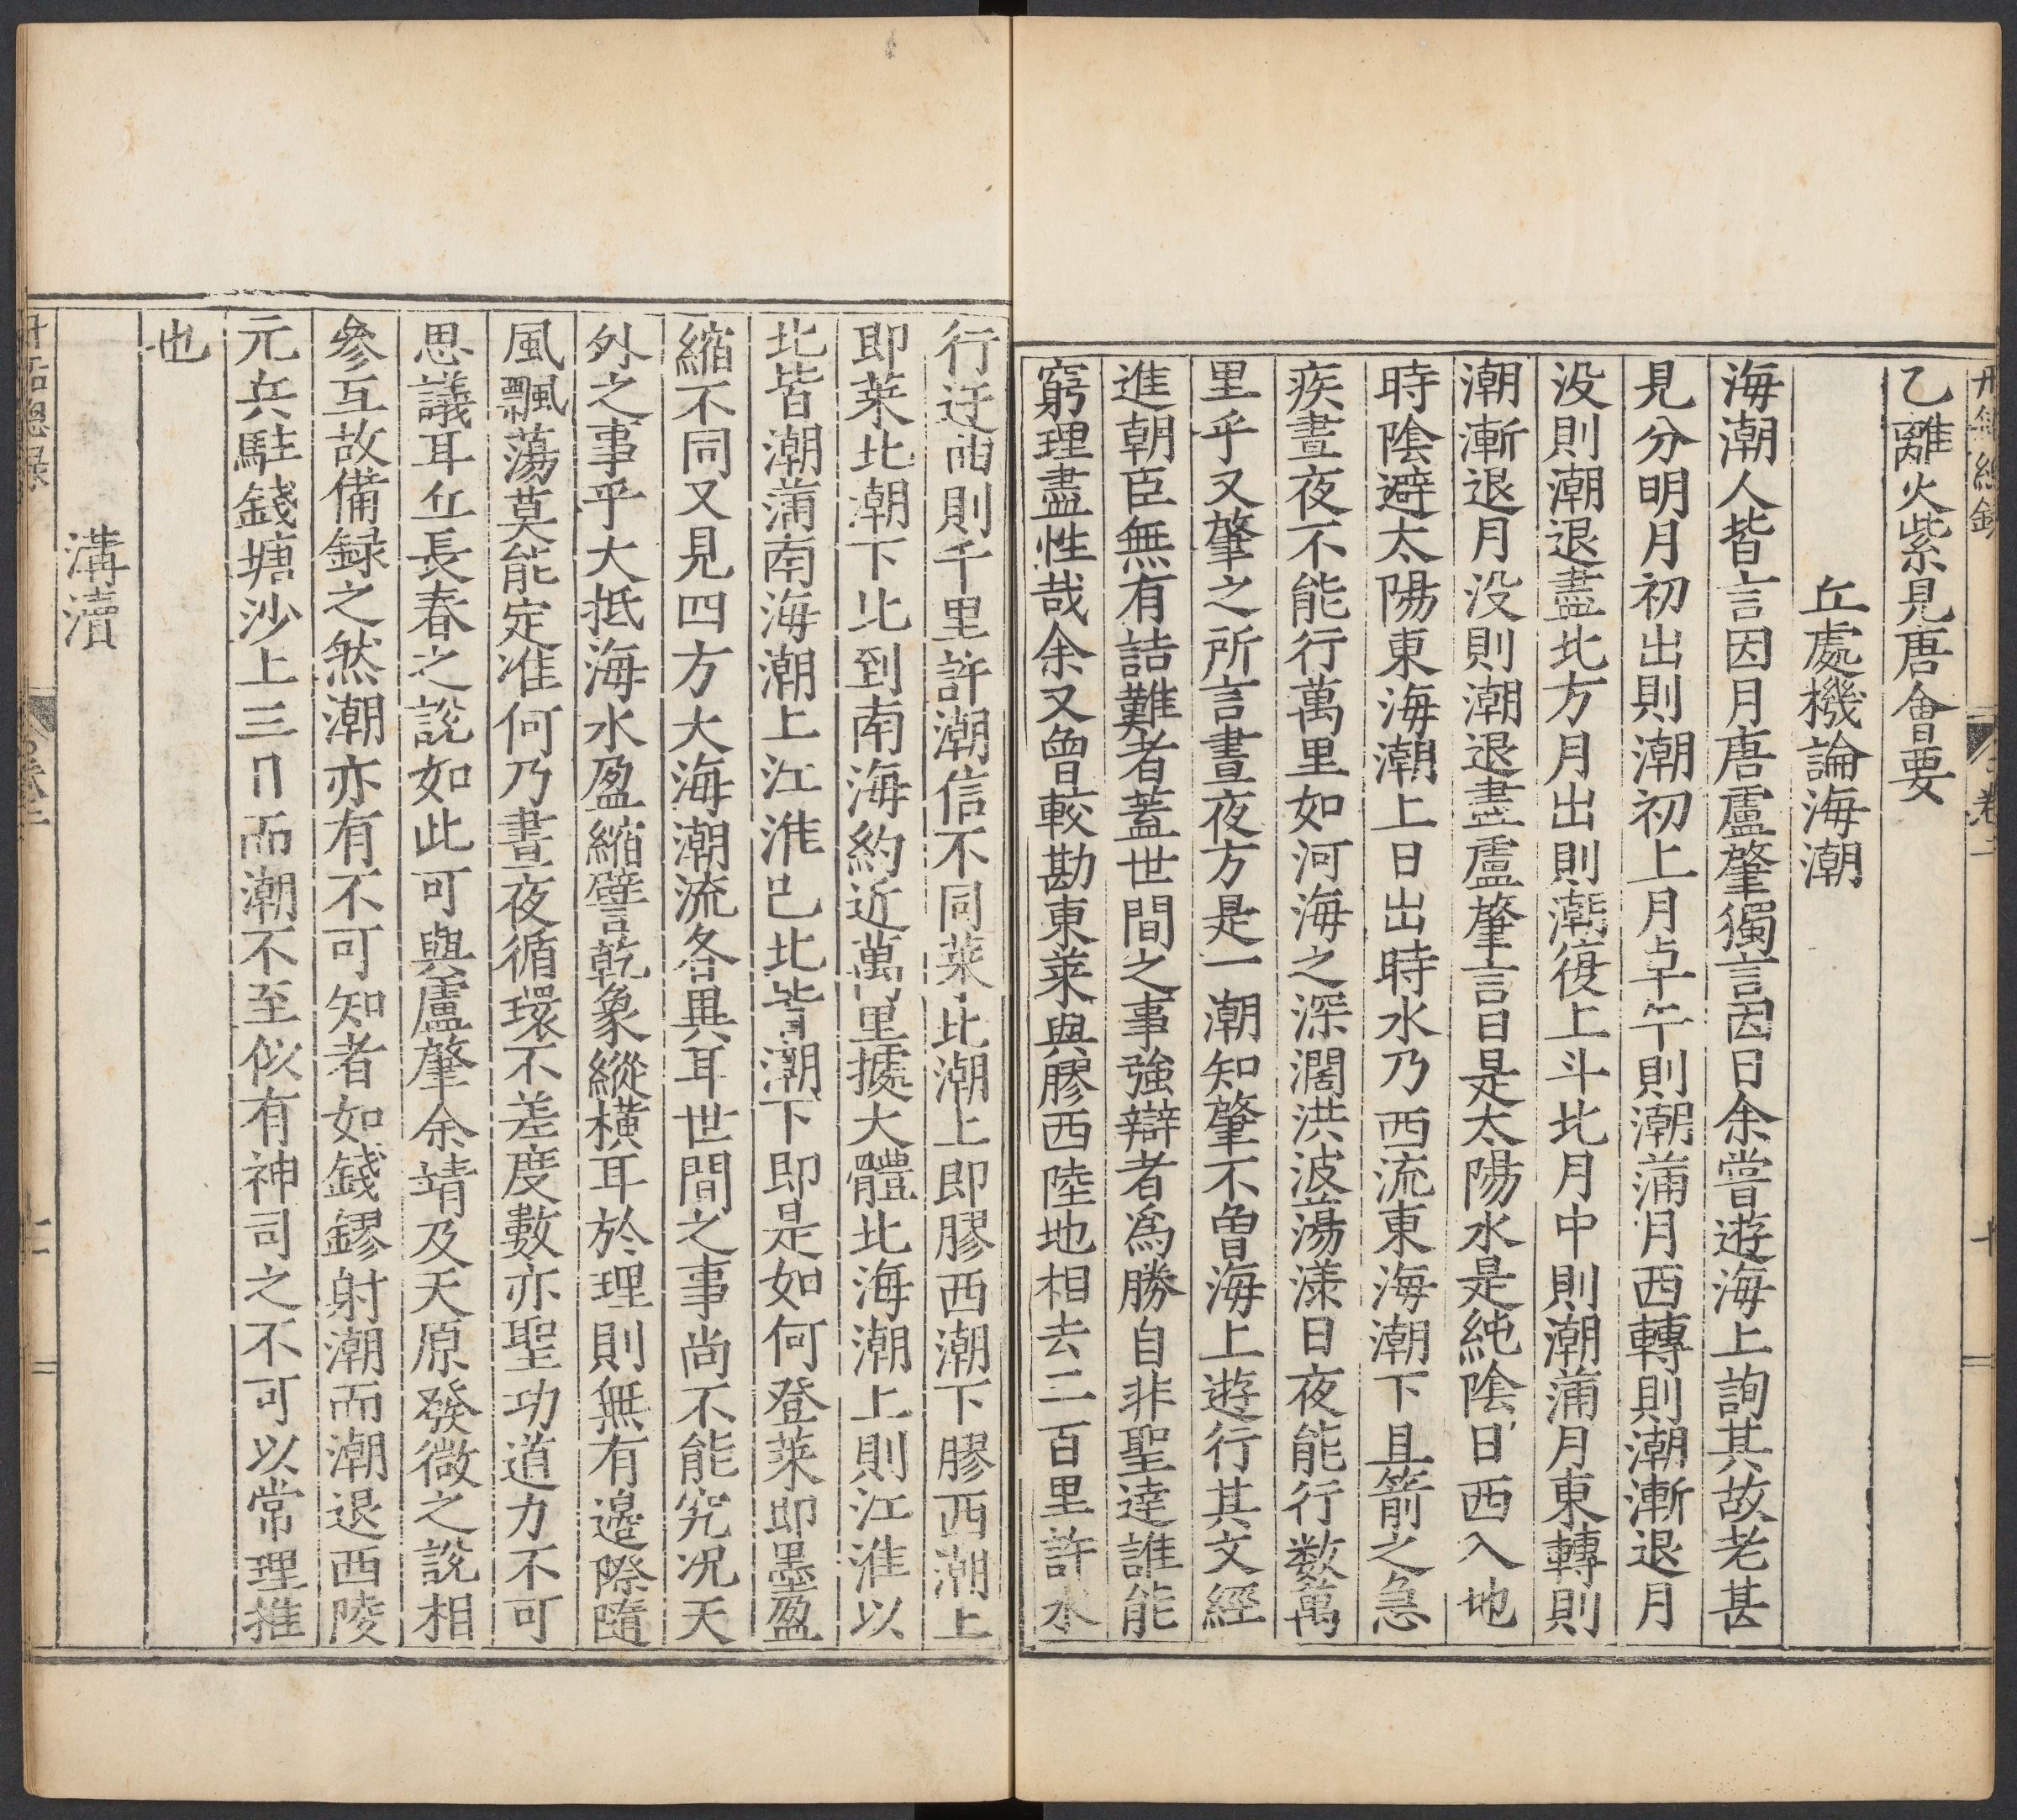 丹鉛總錄 卷二 十
乙離火紫見唐會要
丘處機論海潮
海潮人皆言因月唐盧肇獨言因日余嘗遊海上詢其故老甚
見分明月初出則潮初上月卓午則潮蒲月西轉則潮漸退月
没則潮退盡北方月出則潮復上斗北月中則潮蒲月東轉則
潮漸退月没則潮退盡盧肇言日是太陽水是純陰日西入地
時陰避太陽東海潮上日出時水乃西流東海潮下且箭之急
疾晝夜不能行萬里如河海之深濶洪波蕩漾日夜能行数萬
里乎又肇之所言晝夜方是一潮知肇不曾海上遊行其文經
進朝臣無有詰難者蓋世間之事強辯者爲勝自非聖達誰能
窮理盡性哉余又曾較勘東萊與膠西陸地相去二百里許水
行迂曲則千里許潮信不同萊北潮上即膠西潮下膠西潮上
即萊北潮下北到南海約近萬里據大體北海潮上則江淮以
北皆潮蒲南海潮上江淮巳北皆潮下即是如何登萊即墨盈
縮不同又見四方大海潮流各異耳世間之事尚不能究况天
外之事乎大抵海水盈縮譬乾象縱横耳於理則無有邊際隨
風飄蕩莫能定准何乃晝夜循環不差度數亦聖功道力不可
思議耳丘長春之說如此可與盧肇余靖及天原發微之說相
參互故備録之然潮亦有不可知者如錢鏐射潮而潮退西陵
元兵駐錢塘沙上三日而潮不至似有神司之不可以常理推
也
溝瀆
丹鉛總録 卷二 十一